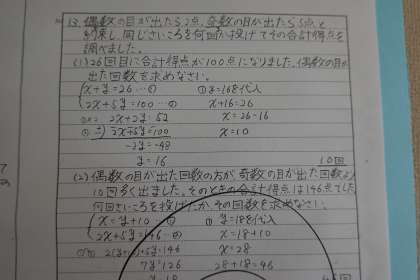 13. 偶数の目が出たら2点、奇数の目が出たら5点と
約束し、同じさいころを何回か投げてその合計得点を
調べました。
(1) 26回目に合計得点が100点になりました。偶数の目が
出た回数を求めなさい。
x+y=26…① ①y=16代入
2x+5y=100…② x+16=26
①×2 2x+2y=52 x=26-16
② -) 2x+5y=100 x=10
-3y=-48
y=16 10回
(2) 偶数の目が出た回数の方が、奇数の目が出た回数より
10回多く出ました。そのときの合計得点は146点でした。
何回さいころを投げたか、その回数を求めなさい。
x=y+10…① ① y=18代入
2x+5y=146…② x=18+10
2(y+10)+5y=146 x=28
7y=126 28+18=46
y=18 46回